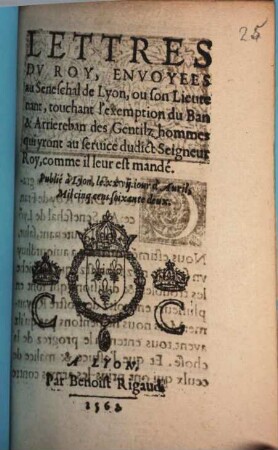 25
LETTRES
DV ROY, ENVOYEES
au Seneſchal de Lyon, ou ſon Lieute
nant, touchant l'exemption du Ban
& Arriereban des Gentilz hommes
qui yront au ſeruice dudict Seigneur
Roy, comme il leur eſt mandé.
Publié à Lyon, le xxvij. iour d'Auril,
Mil cinq cens ſoixante deux.
C C
A LYON,
Par Benoiſt Rigaud
1562